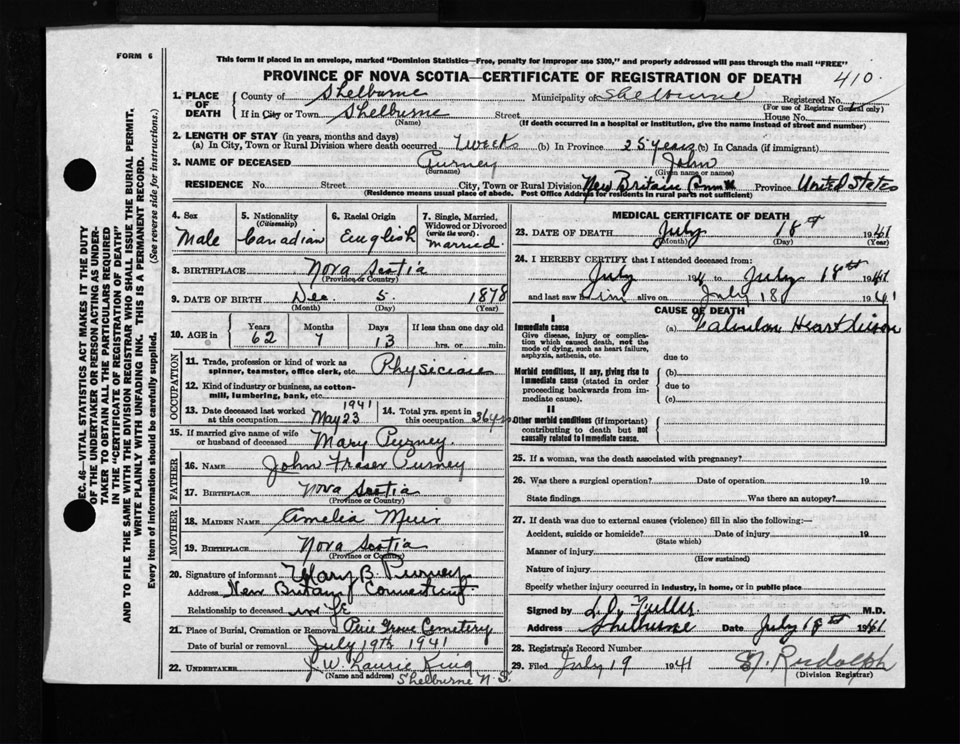 FORM 6
This form if placed in an envelope, marked "Dominion Statistics—Free, penalty for improper use $300," and properly addressed will pass through the mail "FREE"
PROVINCE OF NOVA SCOTIA—CERTIFICATE OF REGISTRATION OF DEATH
410
1. PLACE OF DEATH
County of Shelburne Municipality of Shelburne Registered No.
(For use of Registrar General only)
If in City or Town Shelburne Street House No.
(Name) (If death occurred in a hospital or institution, give the name instead of street and number)
2. LENGTH OF STAY (in years, months and days)
(a) In City, Town or Rural Division where death occurred weeks (b) In Province 25 years (b) In Canada (if immigrant)
3. NAME OF DECEASED Purney John
(Surname) (Given name or names)
RESIDENCE No. Street City, Town or Rural Division New Britain Conn Province United States
(Residence means usual place of abode. Post Office Address for residents in rural parts not sufficient)
4. Sex Male
5. Nationality (Citizenship) Canadian
6. Racial Origin English
7. Single, Married, Widowed or Divorced (write the word) Married.
8. BIRTHPLACE Nova Scotia
(Province or Country)
9. DATE OF BIRTH Dec. 5. 1878
(Month) (Day) (Year)
10. AGE in Years 62 Months 7 Days 13 If less than one day old hrs. or min.
OCCUPATION
11. Trade, profession or kind of work as spinner, teamster, office clerk, etc. Physician
12. Kind of industry or business, as cotton-mill, lumbering, bank, etc.
13. Date deceased last worked at this occupation May 23 1941
14. Total yrs. spent in this occupation 36 yrs
15. If married give name of wife or husband of deceased Mary Purney.
FATHER
16. NAME John Fraser Purney
17. BIRTHPLACE Nova Scotia
(Province or Country)
MOTHER
18. MAIDEN NAME Amelia Muir
19. BIRTHPLACE Nova Scotia
(Province or Country)
20. Signature of informant Mary B. Purney
Address New Britain, Connecticut.
Relationship to deceased wife
21. Place of Burial, Cremation or Removal Pine Grove Cemetery
Date of burial or removal July 19th 1941
22. UNDERTAKER J.W. Laurie King
(Name and address) Shelburne N.S.
MEDICAL CERTIFICATE OF DEATH
23. DATE OF DEATH July 18th 1941
(Month) (Day) (Year)
24. I HEREBY CERTIFY that I attended deceased from:
July 194 to July 18th 1941
and last saw him alive on July 18 1941
CAUSE OF DEATH
I
Immediate cause
Give disease, injury or complication which caused death, not the mode of dying, such as heart failure, asphyxia, asthenia, etc.
(a) Valvular Heart lesion
due to
Morbid conditions, if any, giving rise to immediate cause (stated in order proceeding backwards from immediate cause).
(b)
due to
(c)
II
Other morbid conditions (if important) contributing to death but not causally related to immediate cause.
25. If a woman, was the death associated with pregnancy?
26. Was there a surgical operation? Date of operation 19
State findings Was there an autopsy?
27. If death was due to external causes (violence) fill in also the following:—
Accident, suicide or homicide? Date of injury 19
(State which)
Manner of injury
(How sustained)
Nature of injury
Specify whether injury occurred in industry, in home, or in public place
Signed by Fuller M.D.
Address Shelburne Date July 18th 1941
28. Registrar's Record Number
29. Filed July 19 1941 Rudolph
(Division Registrar)
SEC. 46—VITAL STATISTICS ACT MAKES IT THE DUTY
OF THE UNDERTAKER OR PERSON ACTING AS UNDER-
TAKER TO OBTAIN ALL THE PARTICULARS REQUIRED
IN THE "CERTIFICATE OF REGISTRATION OF DEATH"
AND TO FILE THE SAME WITH THE DIVISION REGISTRAR WHO SHALL ISSUE THE BURIAL PERMIT.
WRITE PLAINLY WITH UNFADING INK. THIS IS A PERMANENT RECORD.
Every item of information should be carefully supplied. (See reverse side for instructions.)